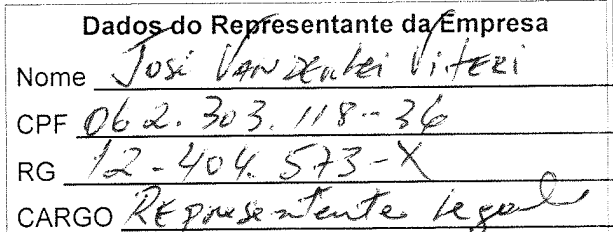 Dados do Representante da Empresa
Nome José Vanderlei Viteri
CPF 062.303.118-36
RG 12-404.573-X
CARGO Representante legal